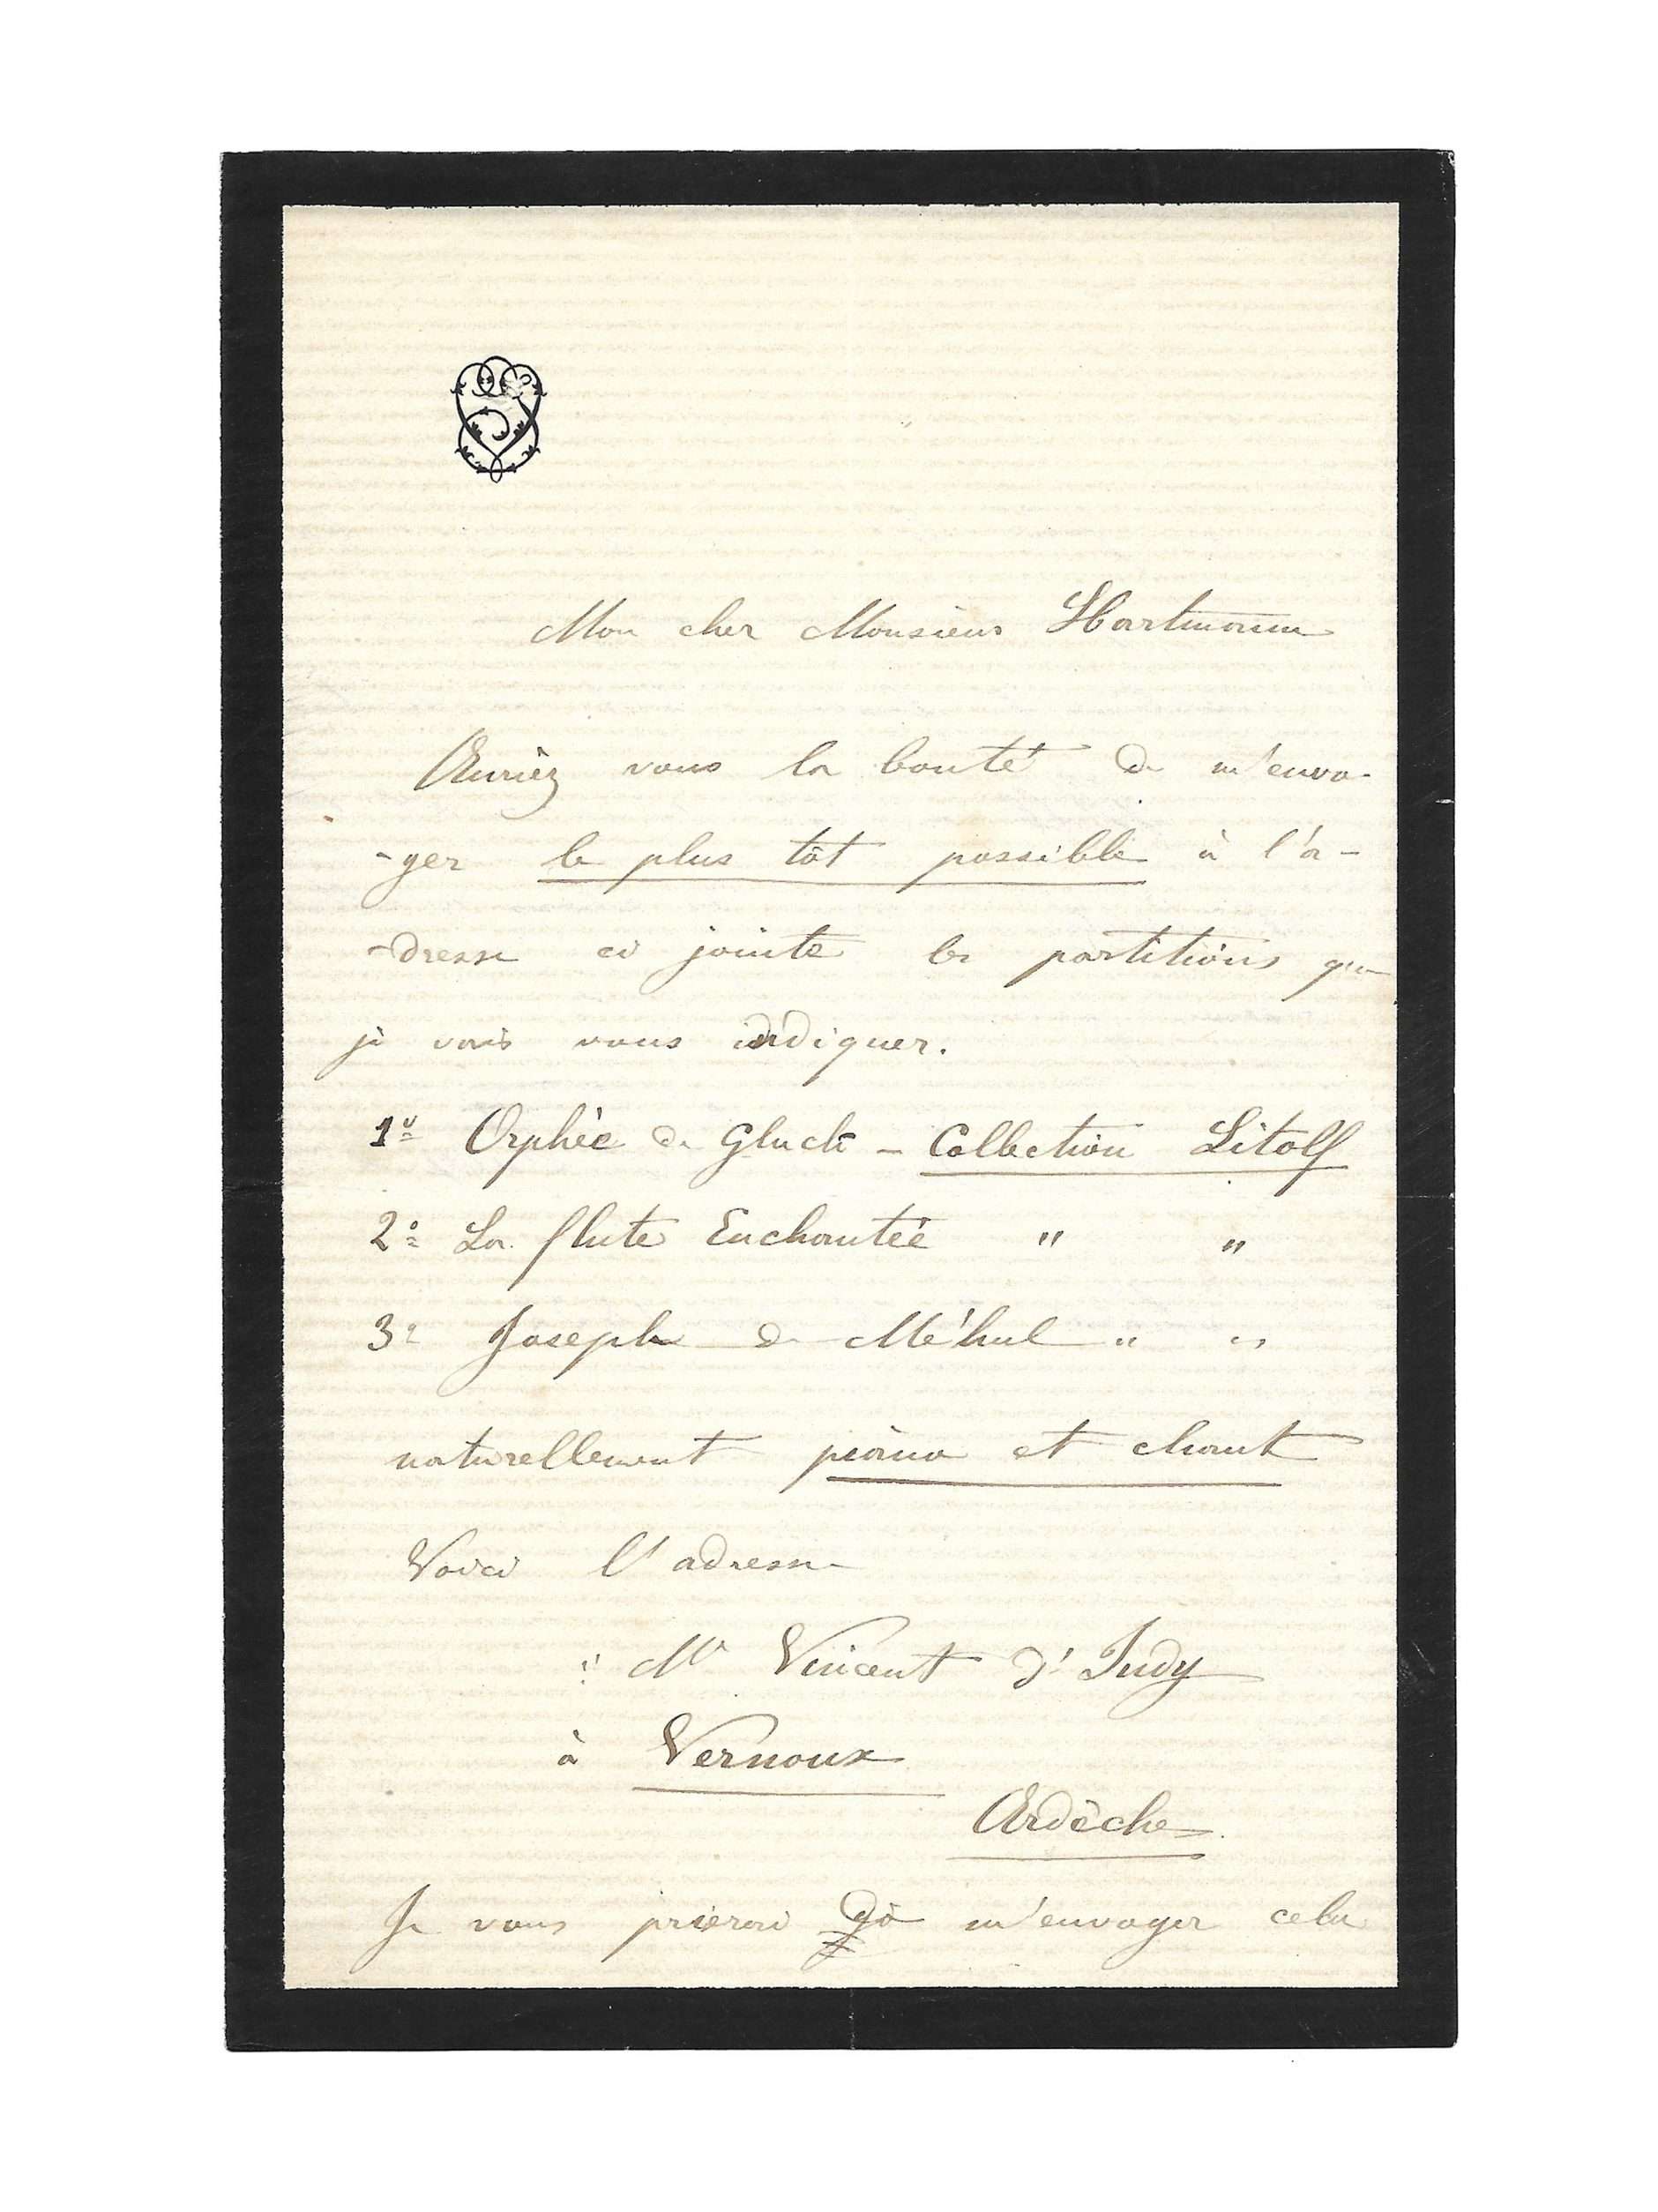 Mon cher Monsieur Hartmann
Auriez vous la bonté de m'envo-
-yer le plus tôt possible à l'a-
-dresse ci jointe les partitions que
je vais vous indiquer.
1º Orphée de Gluck - Collection Litolf
2º La flute Enchantée " "
3º Joseph de Méhul " "
naturellement piano et chant
Voici l'adresse
Mr Vincent d'Indy
à Vernoux
Ardèche
Je vous prierai m'envoyer cela